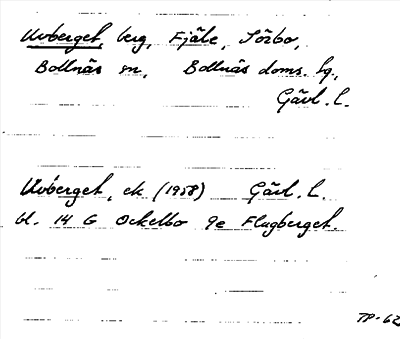 Uvberget, berg, Fjäle, Sörbo,
Bollnäs sn, Bollnäs doms. tg.,
Gävl. l.
Uvberget, ek (1958) Gävl. l.
bl. 14 G Ockelbo 9e Flugberget.
TP-62